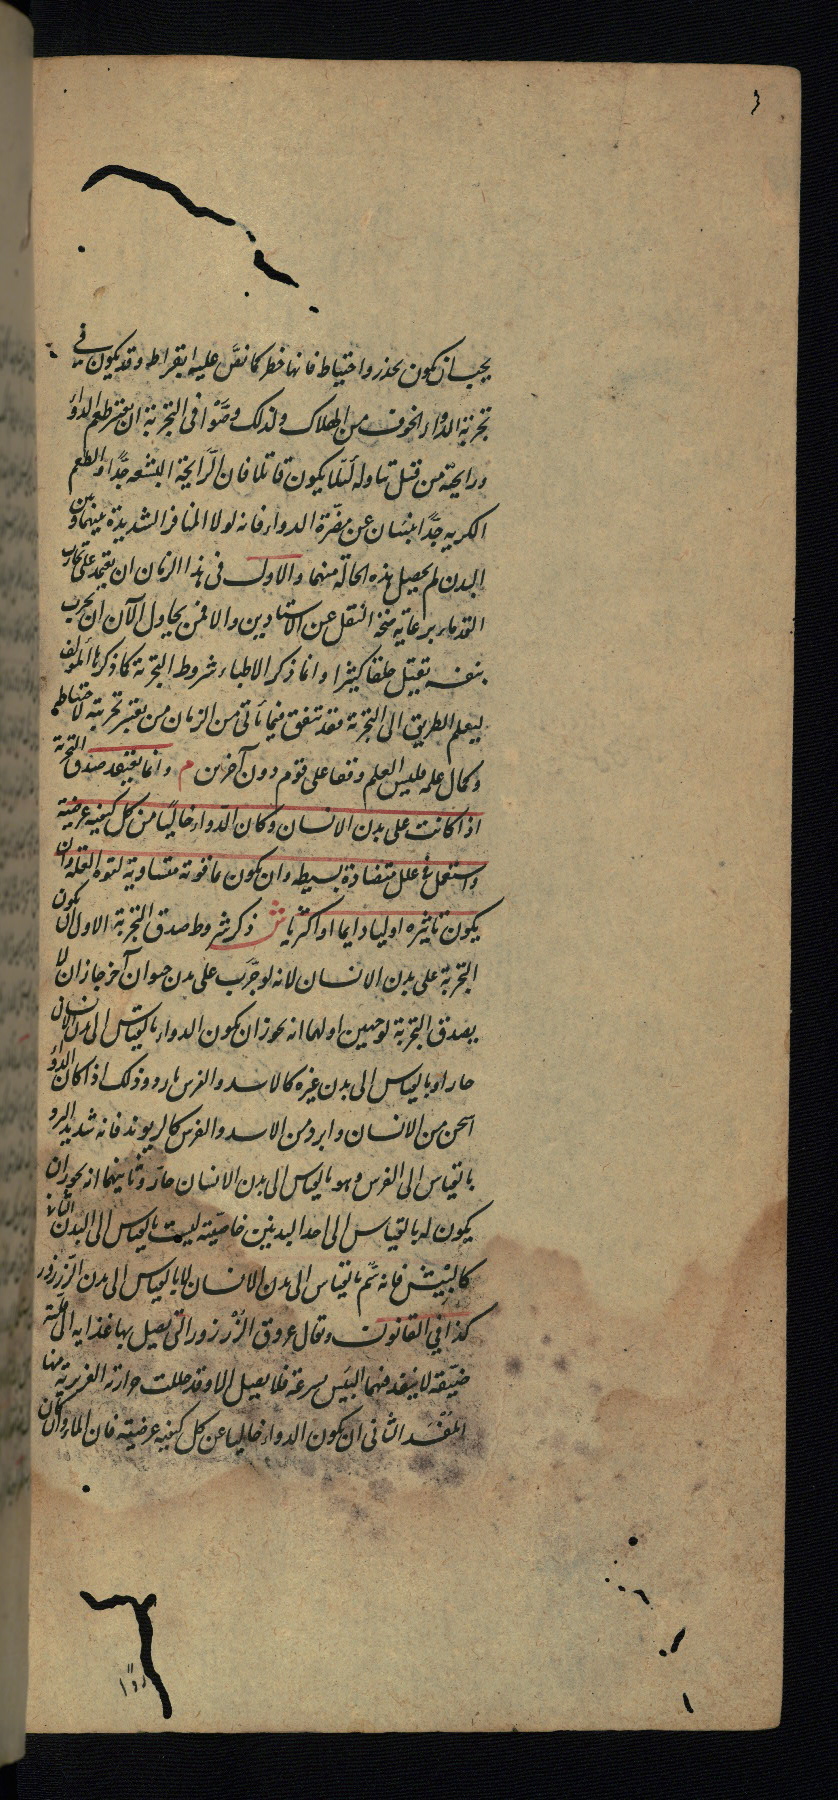 يجب ان يكون بحذر واحتياط فانها خطر كما نصّ عليه ابقراط وقد يكون في
تجربة الدواء الخوف من الهلاك ولذلك وصّوا فى التجربة ان يعتبر طعم الدواء
ورايحته من قبل تناوله لئلا يكون قاتلا فان الرّايحة البشعه جدًا والطعم
الكريه جدًّا ينبئان عن مضرّة الدواء فانه لولا المنافرة الشديدة بينهما وبين
البدن لم يحصل هذه الحالة منهما والاولى فى هذا الزمان ان يعتمد على تجارب
القدماء برعاية صحّة النقل عن الاستادين والا فمن يحاول الآن ان يجرب
بنفسه يقتل خلقا كثيرا وانما ذكر الاطباء شروط التجربة كما ذكرها المؤلف
ليعلم الطريق الى التجربة فقد تتفق فيما يأتى من الزمان من يعتبر تجربته لاحتياطه
وكمال علمه فليس العلم وقفا على قوم دون آخرين م وانما يعتقد صدق التجربة
اذا كانت على بدن الانسان وكان الدواء خاليًا من كل كيفية عرضية
واستعمل فى علل متضادة بسيطه وان يكون ما قوته متساوية لقوة العلة وان
يكون تاثيره اوليا دايما او اكثريا ش ذكر شروط صدق التجربة الاول ان يكون
التجربة على بدن الانسان لانه لو جرّب على بدن حيوان آخر جاز ان لا
يصدق التجربة لوجهين اولهما انه يجوز ان يكون الدواء بالقياس الى بدن الانسان
حارا وبالقياس الى بدن غيره كالاسد والفرس باردو وذلك اذا كان الدواء
اسخن من الانسان وابرد من الاسد والفرس كالريوند فانه شديد البرد
بالقياس الى الفرس وهو بالقياس الى بدن الانسان حار وثانيهما انه يجوز ان
يكون له بالقياس الى احد البدنين خاصّيته ليست بالقياس الى البدن الثانى
كالبيش فانه سمّ بالقياس الى بدن الانسان لا بالقياس الى بدن الزرزور
كذا فى القانون وقال عروق الزرزور التى يصل بها غذايه الى قلبه
ضيّقة لا ينفذ منها البيش بسرعة فلا يصل الا وقد حللت حرارته الغريزية منها
المفسد الثانى ان يكون الدواء خاليا عن كل كيفية عرضية فان الماء وان كان